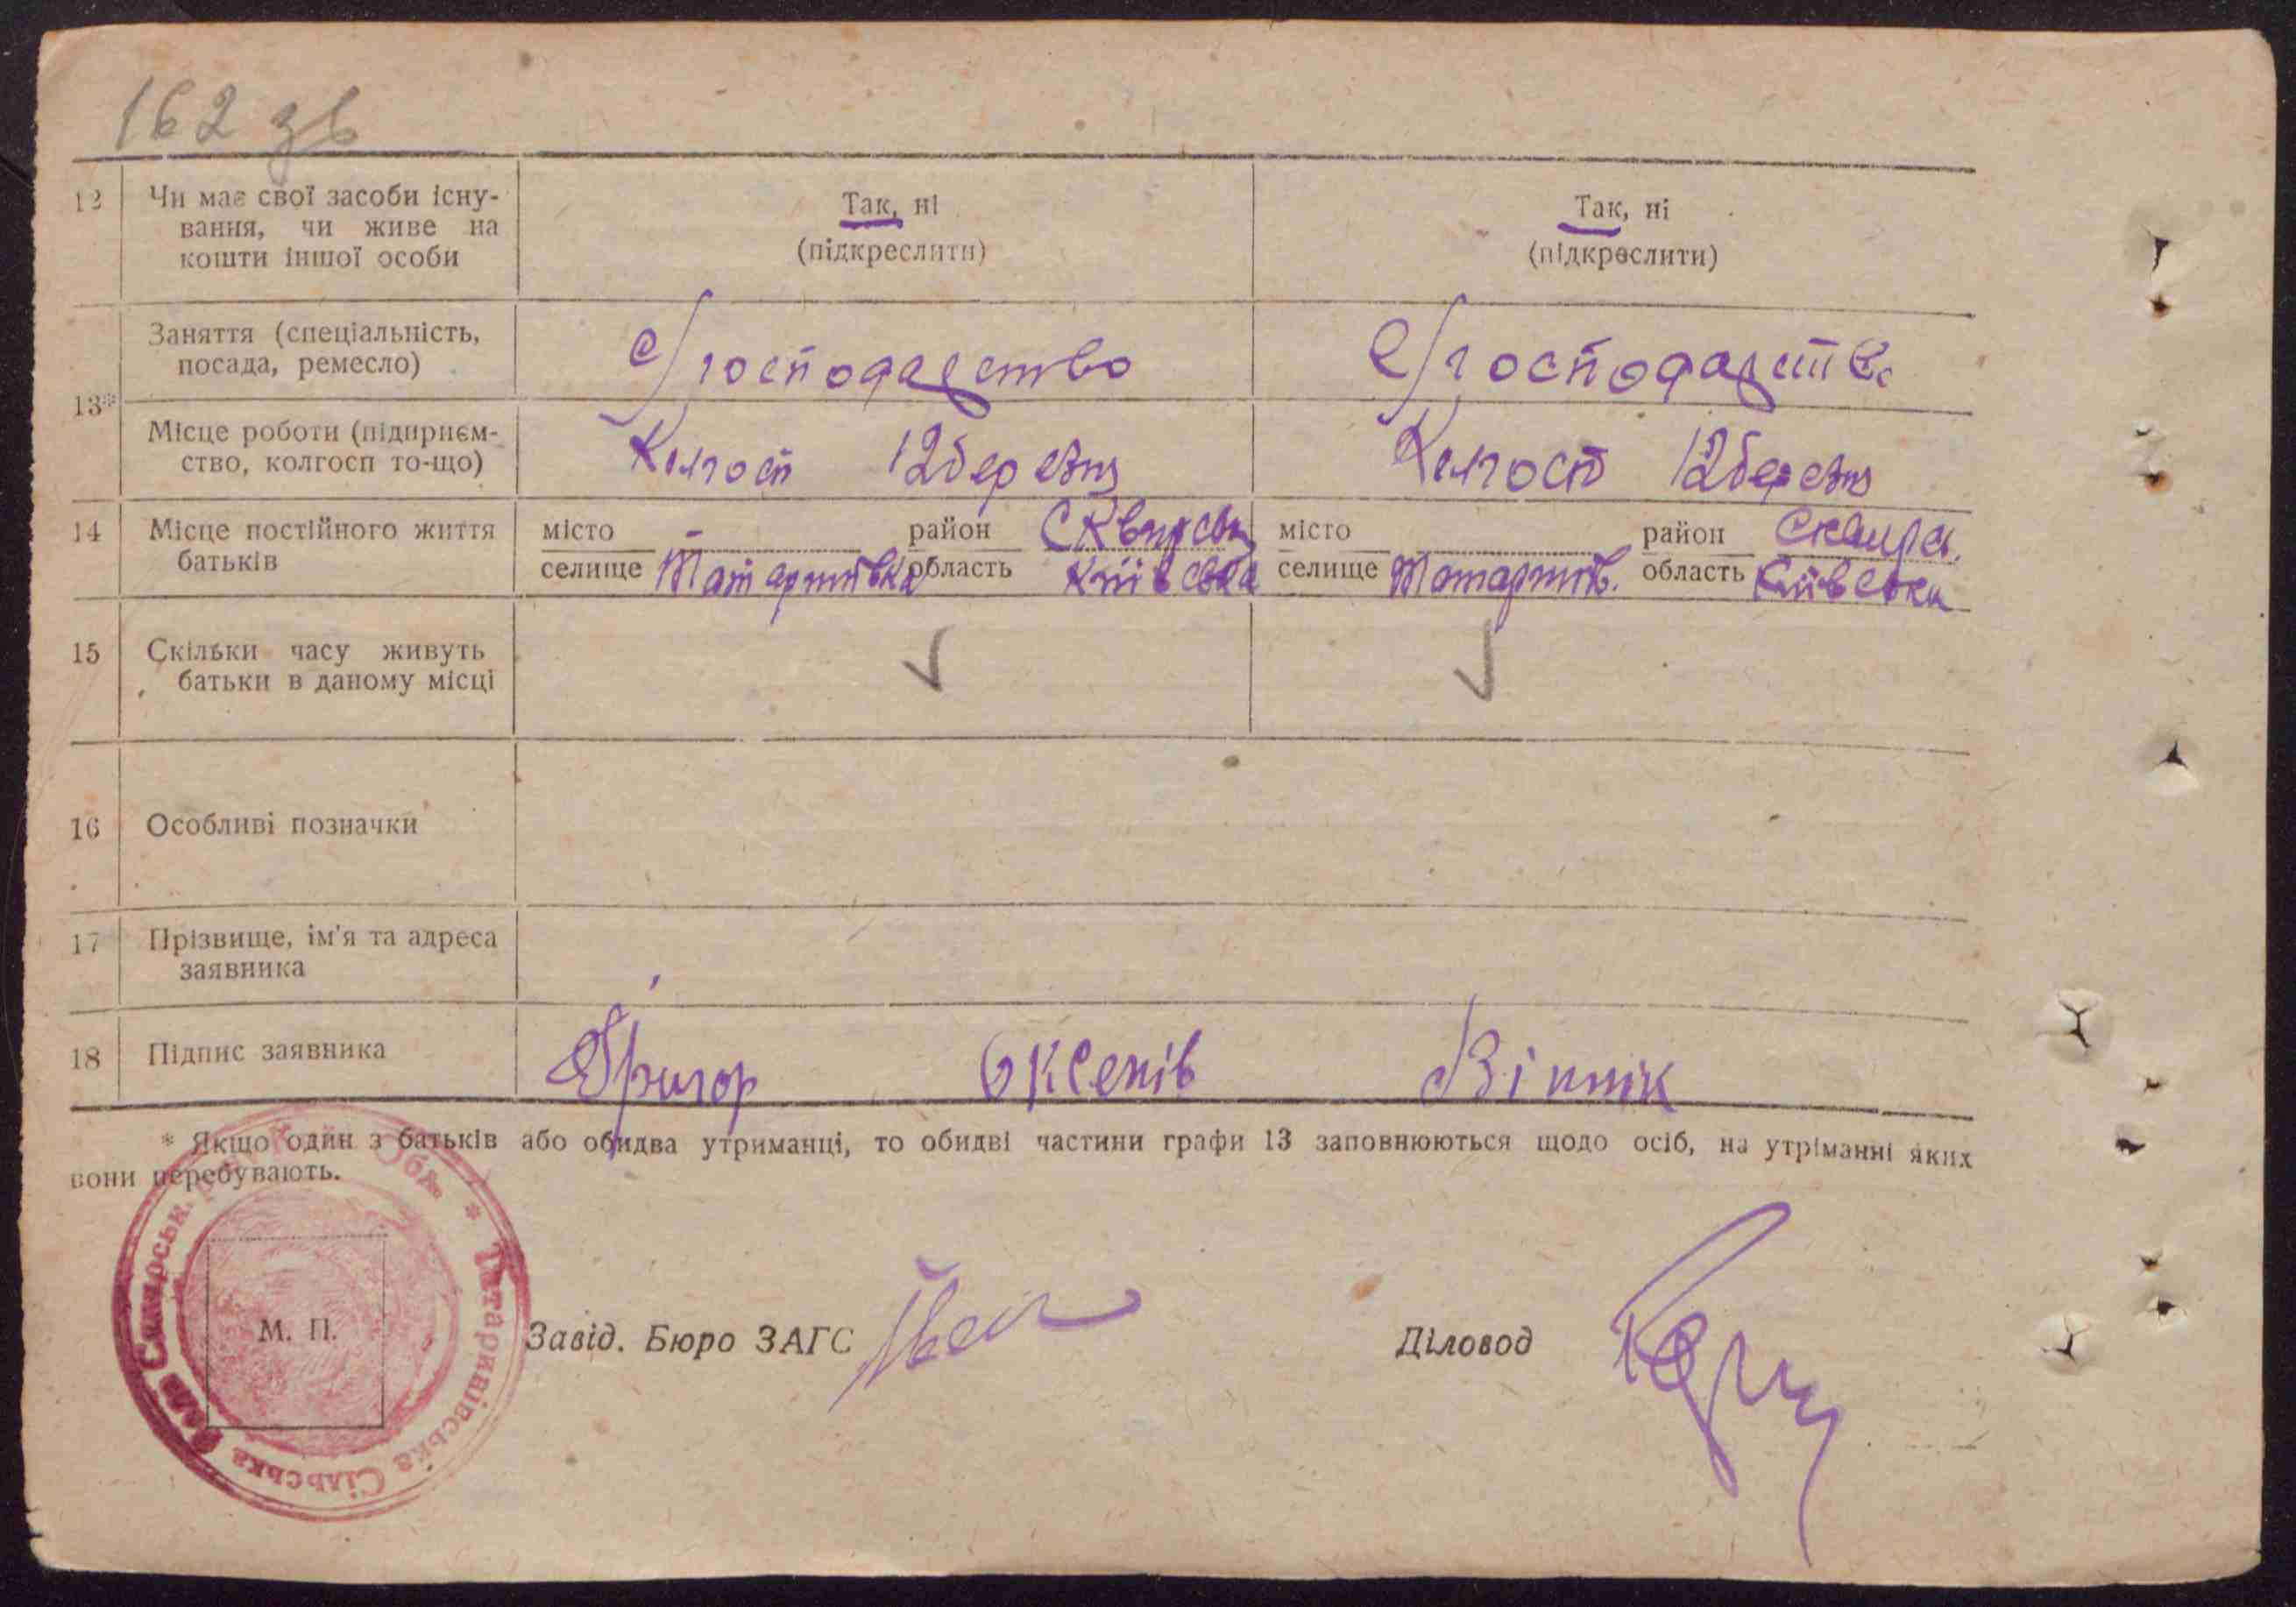 162 зв
12 Чи має свої засоби існу-
вання, чи живе на
кошти іншої особи
Так, ні
(підкреслити)
Так, ні
(підкреслити)
13* Заняття (спеціальність,
посада, ремесло)
с/господарство
с/господарство
Місце роботи (підприєм-
ство, колгосп то-що)
Колгосп 12 березня
Колгосп 12 березня
14 Місце постійного життя
батьків
місто — район Сквирськ
селище Татаринівка область Київська
місто район Сквирс.
селище Татаринів. область Київська
15 Скільки часу живуть
батьки в даному місці
16 Особливі позначки
17 Прізвище, ім'я та адреса
заявника
18 Підпис заявника
Григор Оксенів Вінник
* Якщо один з батьків або обидва утриманці, то обидві частини графи 13 заповнюються щодо осіб, на утріманні яких
вони перебувають.
Татаринівська Сільська Рада Сквирськ.
М. П.
Завід. Бюро ЗАГС
Діловод